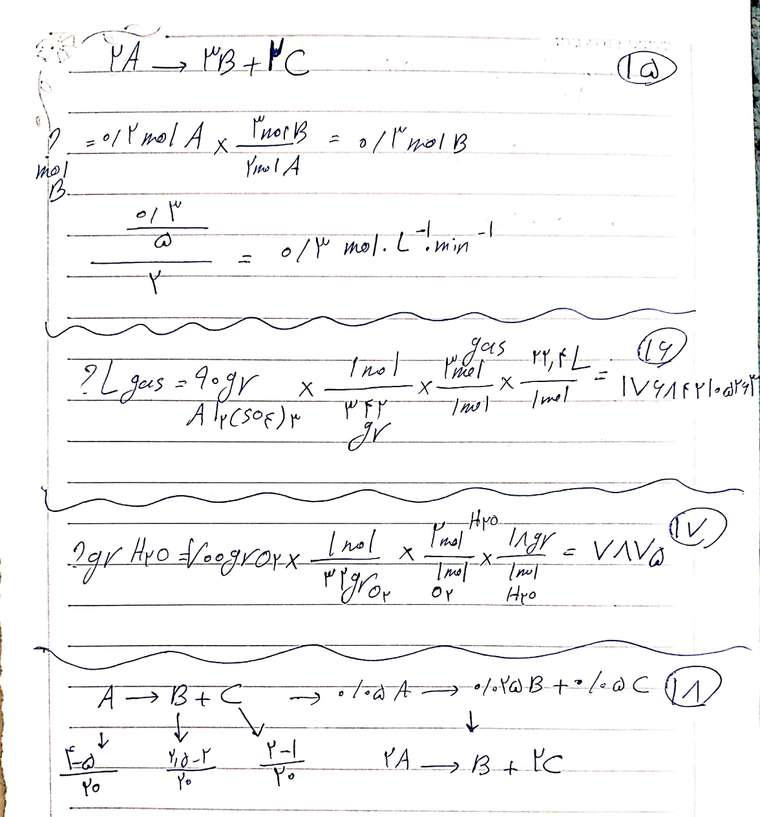 ۱۵
۲A → ۳B + ۲C
? mol B = ۰/۲ mol A × ۳mol B / ۲mol A = ۰/۳ mol B
۰/۳ / ۵ / ۲ = ۰/۳ mol. L⁻¹. min⁻¹
۱۶
? L gas = ۹۰gr Al₂(SO₄)₃ × ۱mol / ۳۴۲ gr × ۳mol gas / ۱mol × ۲۲,۴L / ۱mol = ۱۷۶۸۴۲۱۰۵۲۶۳
۱۷
? gr H₂O = ۷۰۰gr O₂ × ۱mol / ۳۲gr O₂ × ۲mol H₂O / ۱mol O₂ × ۱۸gr / ۱mol H₂O = ۷۸۷۵
۱۸
A → B + C → ۰/۰۵ A → ۰/۰۲۵B + ۰/۰۵ C
۴-۵ / ۲۰ ۲,۵-۲ / ۲۰ ۲-۱ / ۲۰ ۲A → B + ۲C